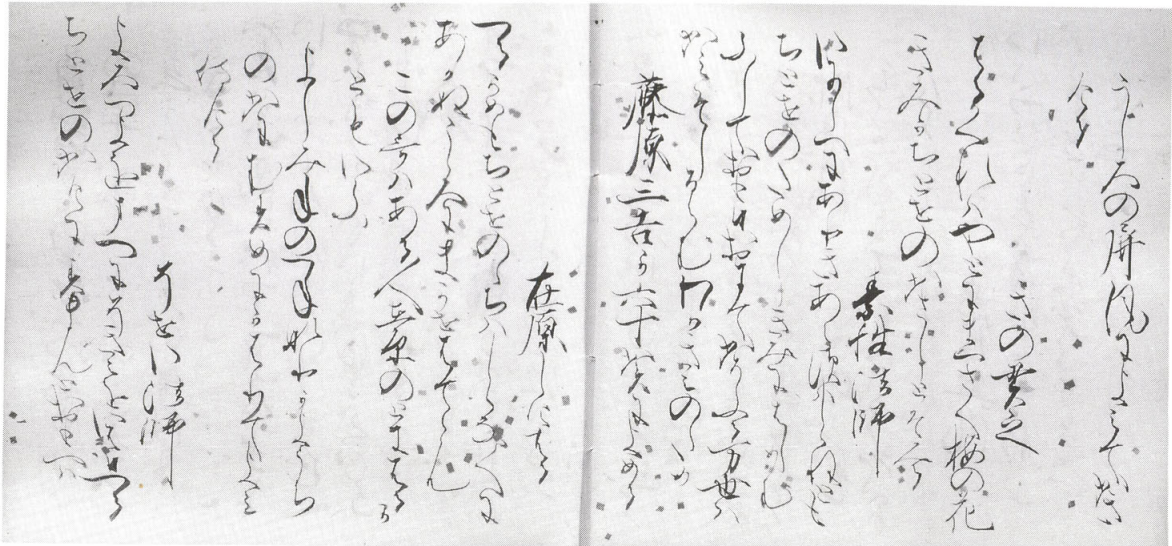 うしろの屏風によみてかき
ける
きの貫之
はるくれはやとにまつさく梅の花
きみかちとせのかさしとそみる
素性法師
いにしへにありきあらすはしらねとも
ちとせのためしきみにはしめむ
ふしておもひおきてかそふる万世は
かみそしるらむわかきみのため
藤原三善か六十賀によめる
在原しけはる
つるかめもちとせのゝちはしらなくに
あかぬこゝろにまかせはてゝむ
この哥はある人在原のときはるか
ともいふ
よしみねのつねなりかよそち
のかにむすめにかはりてよみ
侍ける
そせい法師
よろつよをまつにそきみをいはひつる
ちとせのかけにすまんとおもへは